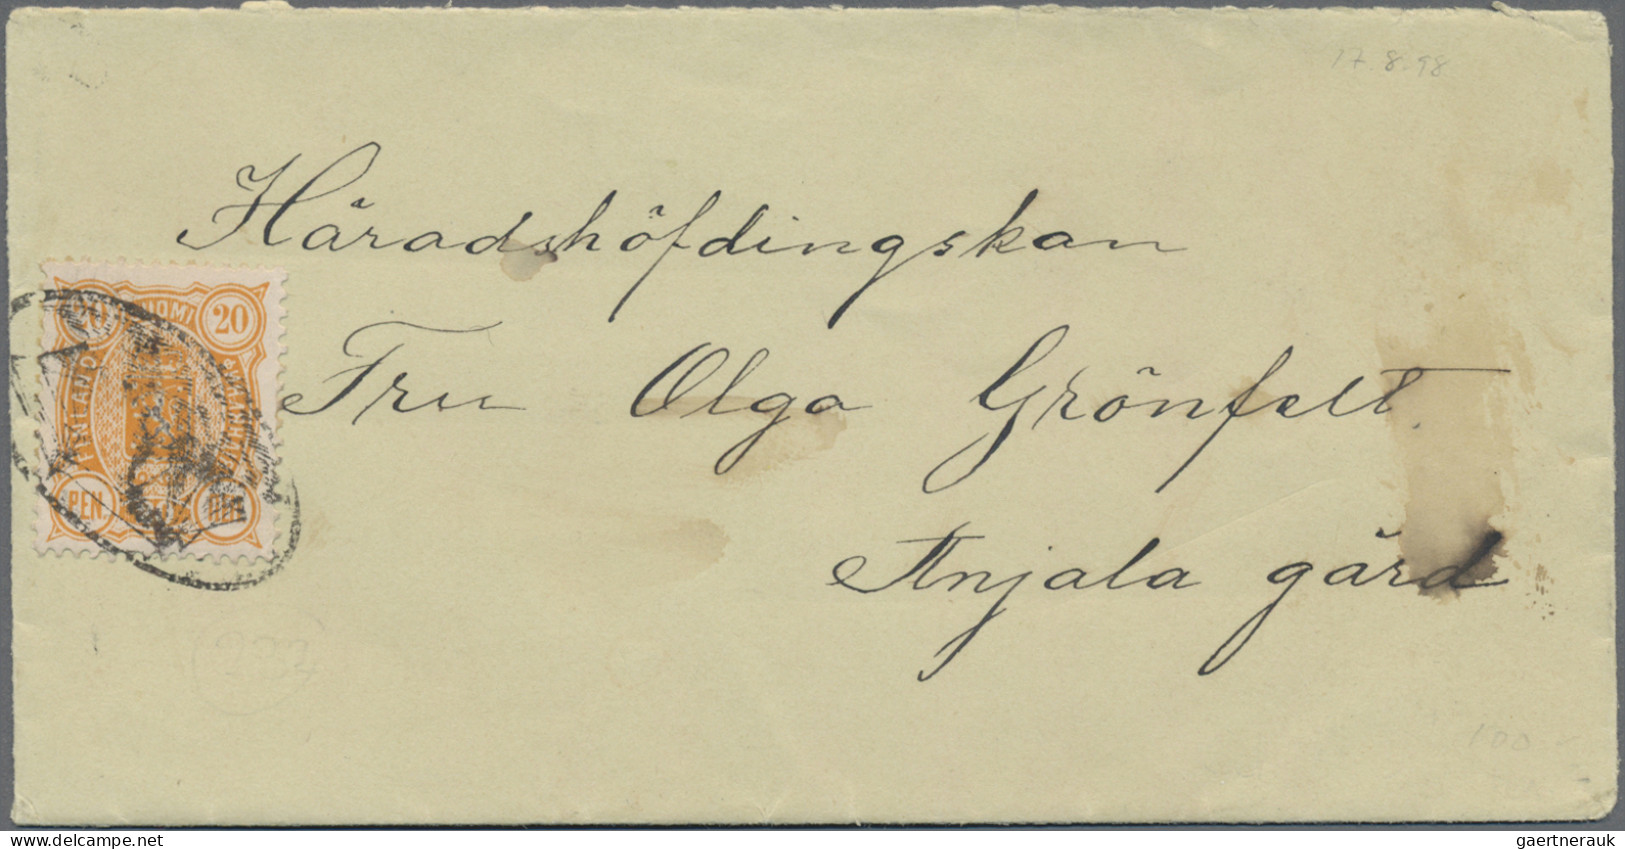 17.8.98
Häradshöfdingskan
SUOMI 20
Fru Olga Grönfelt.
PEN.
Anjala gård
100
www.delcampe.net
gaertnerauk